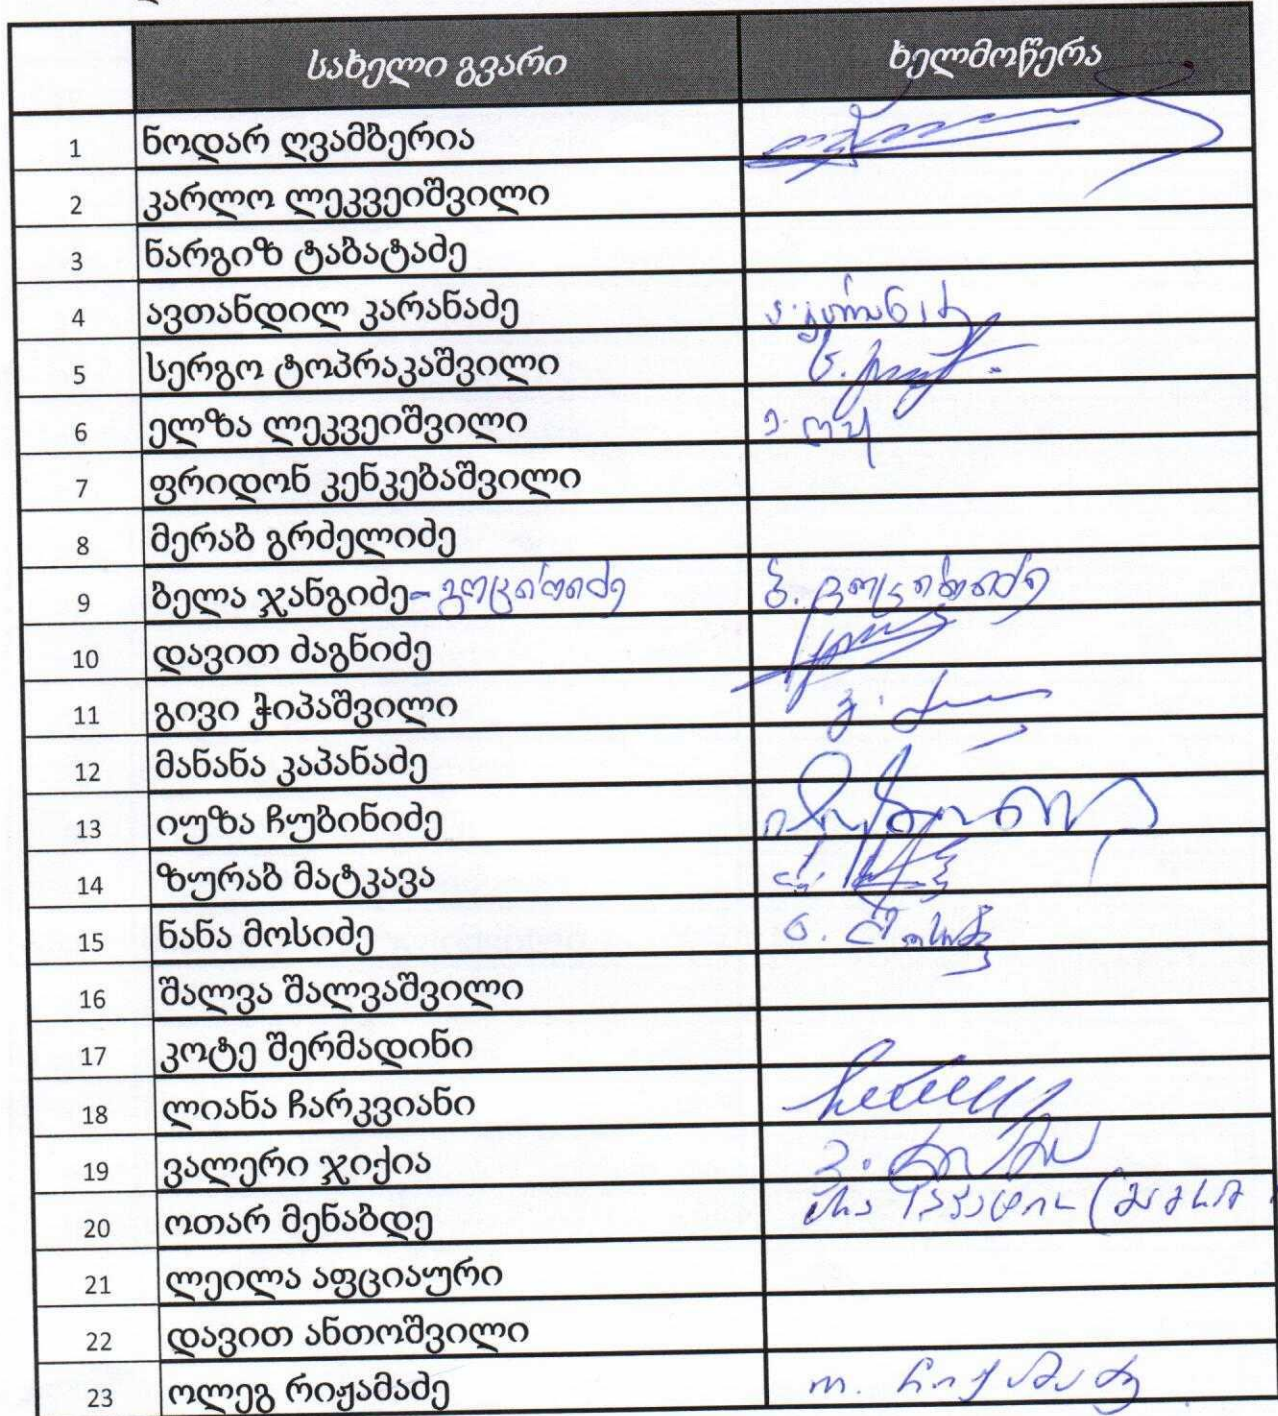 სახელი გვარი ხელმოწერა
1 ნოდარ ღვამბერია
2 კარლო ლეკვეიშვილი
3 ნარგიზ ტაბატაძე
4 ავთანდილ კარანაძე
5 სერგო ტოპრაკაშვილი
6 ელზა ლეკვეიშვილი
7 ფრიდონ კენკებაშვილი
8 მერაბ გრძელიძე
9 ბელა ჯანგიძე-
10 დავით ძაგნიძე
11 გივი ჭიპაშვილი
12 მანანა კაპანაძე
13 იუზა ჩუბინიძე
14 ზურაბ მატკავა
15 ნანა მოსიძე ნ. მოსიძე
16 შალვა შალვაშვილი
17 კოტე შერმადინი
18 ლიანა ჩარკვიანი
19 ვალერი ჯიქია
20 ოთარ მენაბდე
21 ლეილა აფციაური
22 დავით ანთოშვილი
23 ოლეგ რიჟამაძე ო. რიჟამაძე